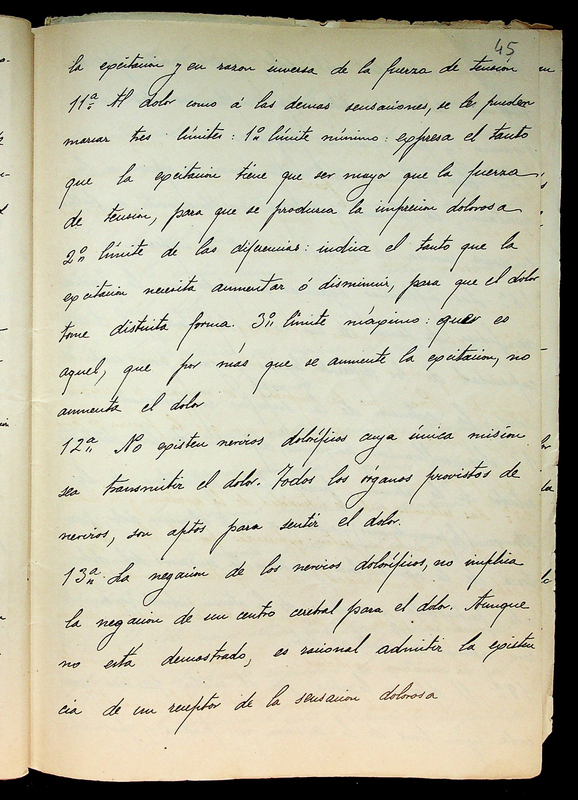 45
la excitacion y en razon inversa de la fuerza de tensión
11ª Al dolor como á las demas sensaciones, se le pueden
marcar tres límites: 1º límite mínimo: expresa el tanto
que la excitacion tiene que ser mayor que la fuerza
de tension, para que se produzca la impresion dolorosa
2º límite de las diferencias: indica el tanto que la
excitacion necesita aumentar ó disminuir, para que el dolor
tome distinta forma. 3º límite máximo: que es
aquel, que por más que se aumente la excitacion, no
aumenta el dolor
12ª No existen nervios doloríficos cuya única mision
sea transmitir el dolor. Todos los órganos provistos de
nervios, son aptos para sentir el dolor.
13ª La negacion de los nervios doloríficos, no implica
la negacion de un centro cerebral para el dolor. Aunque
no está demostrado, es racional admitir la existen
cia de un receptor de la sensacion dolorosa